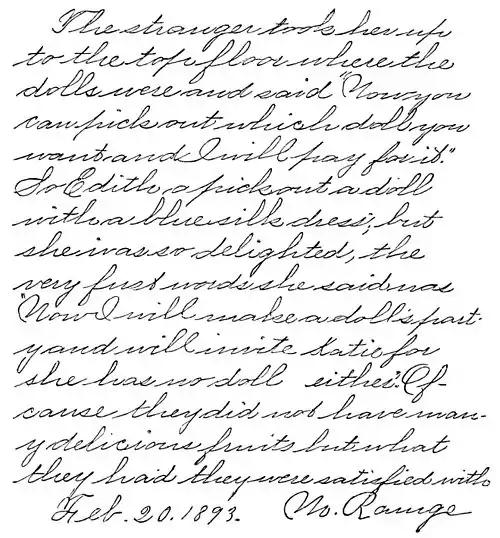 The stranger took her up
to the top floor where the
dolls were and said "Now you
can pick out which doll you
want and I will pay for it."
So Edith a pick out a doll
with a blue silk dress; but
she was so delighted, the
very first words she said was
"Now I will make a doll's part-
y and will invite Katie for
she has no doll either." Of-
cause they did not have man-
y delicious fruits but what
they had they were satisfied with
Feb. 20. 1893. No. Range